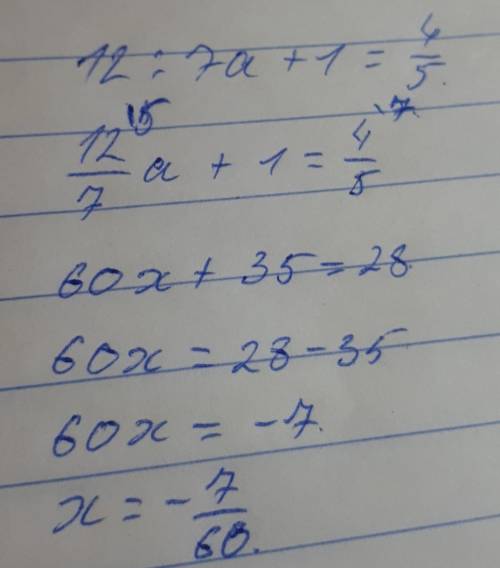 12 : 7a + 1 = 4/5.
12/7 \5 a + 1 = 4/5 \7
60x + 35 = 28.
60x = 28 - 35
60x = -7.
x = - 7/60.